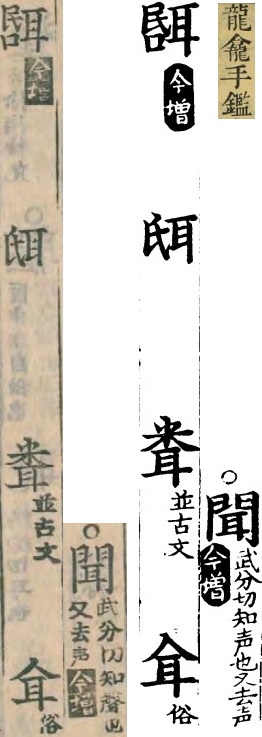 龍龕手鑑
聞
今增
武分切知声也又去声
今增
並古文
俗
聞
武分切知聲也
又去声
今增
今增
並古文
俗